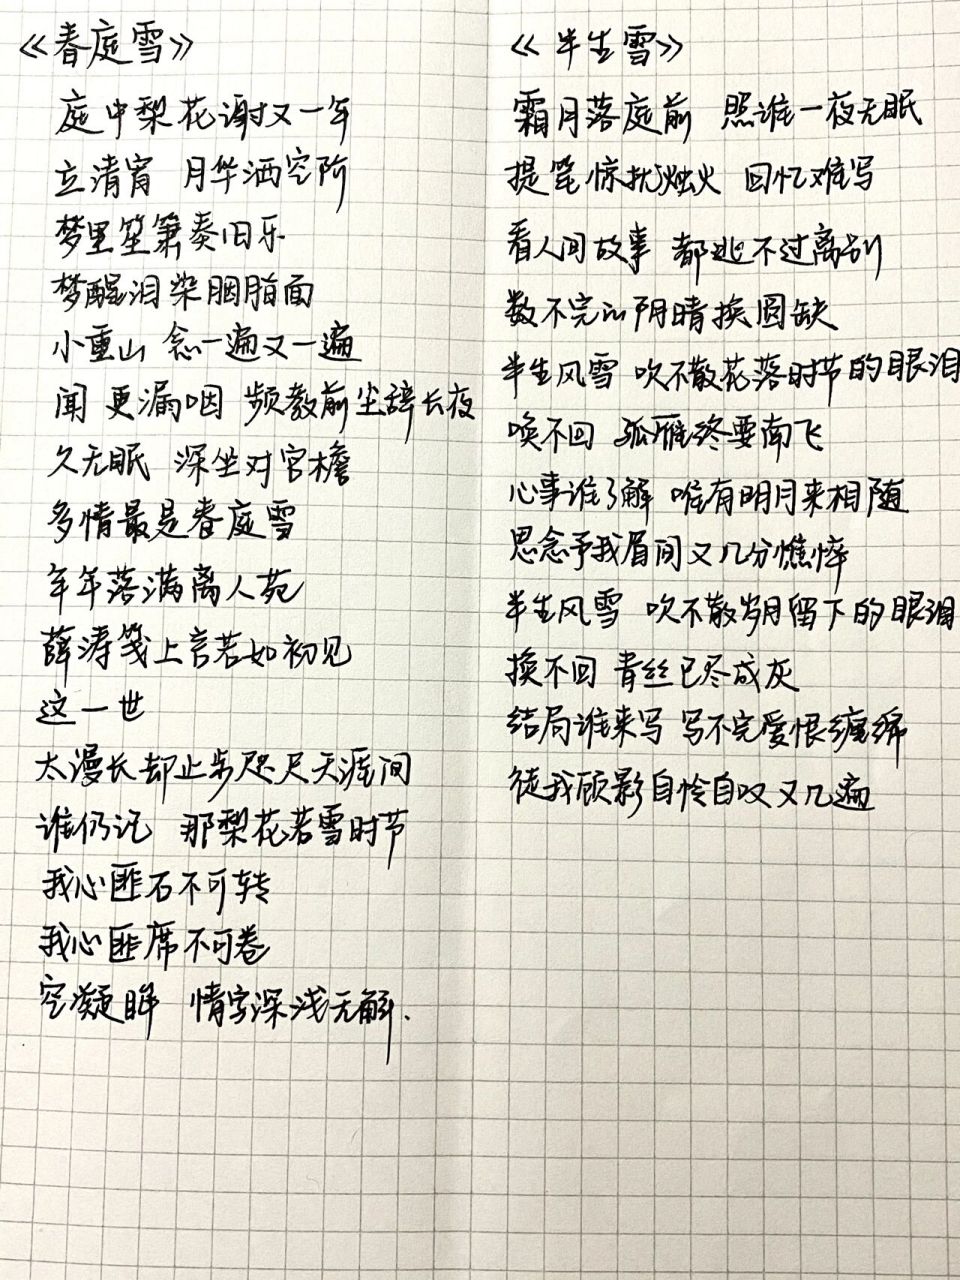 《春庭雪》
庭中梨花谢又一年
立清宵 月华洒空阶
梦里笙箫奏旧乐
梦醒泪染胭脂面
小重山 念一遍又一遍
闻 更漏咽 频教前尘辞长夜
久无眠 深坐对宫檐
多情最是春庭雪
年年落满离人苑
薛涛笺上言若如初见
这一世
太漫长却止步咫尺天涯间
谁仍记 那梨花若雪时节
我心匪石不可转
我心匪席不可卷
空凝眸 情字深浅无解.
《半生雪》
霜月落庭前 照谁一夜无眠
提笔惊扰烛火 回忆难写
看人间故事 都逃不过离别
数不完的阴晴换圆缺
半生风雪 吹不散花落时节的眼泪
唤不回 孤雁终要南飞
心事谁了解 唯有明月来相随
思念予我眉间又几分憔悴
半生风雪 吹不散岁月留下的眼泪
换不回 青丝已尽成灰
结局谁来写 写不完爱恨缠绵
徒我顾影自怜自叹又几遍